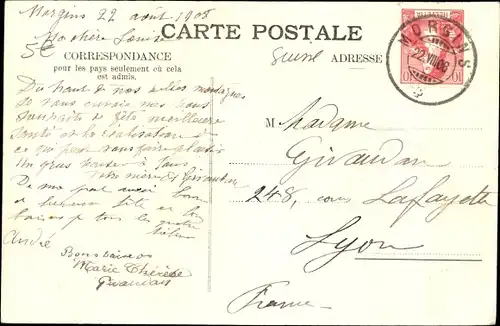 Morgins 22 août 1908
Ma chère Louise
5€
CARTE POSTALE
Suisse
CORRESPONDANCE
pour les pays seulement où cela
est admis.
ADRESSE
MORGINS
22.VIII.08
HELVETIA
10 10
Du haut de nos belles montagnes
je vous envoie mes bons
souhaits de fête meilleure
santé et la réalisation de
ce qui peut vous faire plaisir
Un gros baiser à tous
Giraudan
De ma part aussi bonne
et heureuse fête et bons
baisers à tous les quatre
André
Bons baisers
Marie Thérèse
Giraudan
M Madame
Giraudan
248, cours Lafayette
Lyon
France